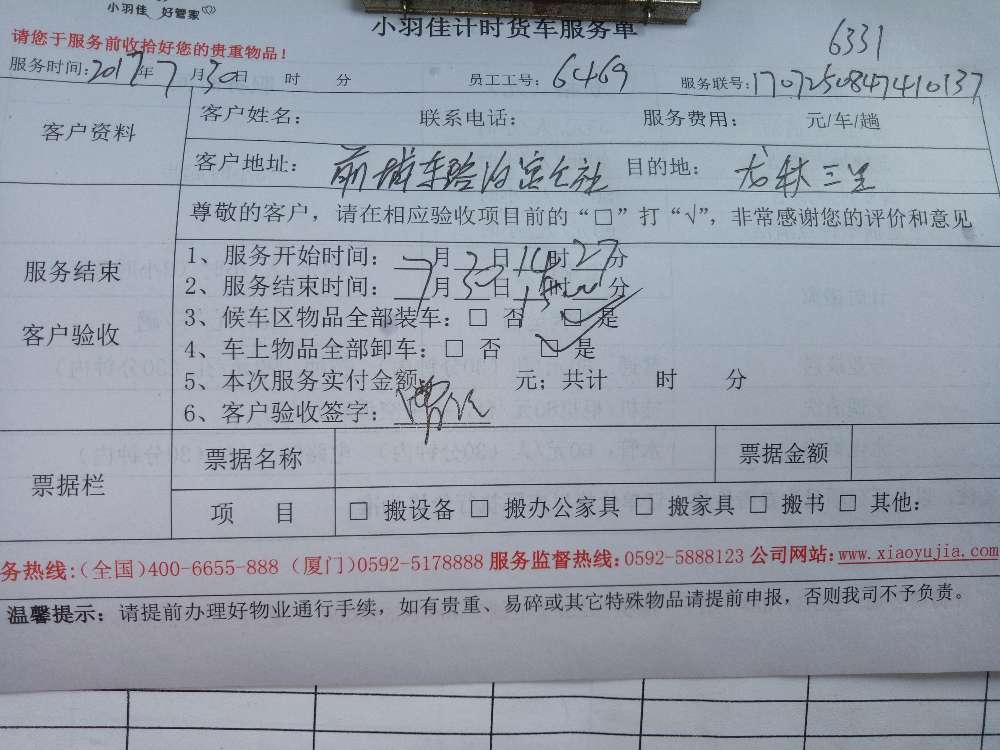 小羽佳 好管家
小羽佳计时货车服务单
6331
请您于服务前收拾好您的贵重物品！
服务时间：2017年7月30日 时 分 员工工号：6469 服务联号：1707250847410137
客户资料
客户姓名： 联系电话： 服务费用： 元/车/趟
客户地址： 目的地：
尊敬的客户，请在相应验收项目前的“□”打“√”，非常感谢您的评价和意见
服务结束
客户验收
1、服务开始时间：7月30日14时27分
2、服务结束时间：7月30日15时00分
3、候车区物品全部装车：□ 否 □ 是
4、车上物品全部卸车：□ 否 □ 是
5、本次服务实付金额 元；共计 时 分
6、客户验收签字：
票据栏
票据名称 票据金额
项 目 □ 搬设备 □ 搬办公家具 □ 搬家具 □ 搬书 □ 其他：
务热线：（全国）400-6655-888（厦门）0592-5178888 服务监督热线：0592-5888123 公司网站：www.xiaoyujia.com
温馨提示：请提前办理好物业通行手续，如有贵重、易碎或其它特殊物品请提前申报，否则我司不予负责。